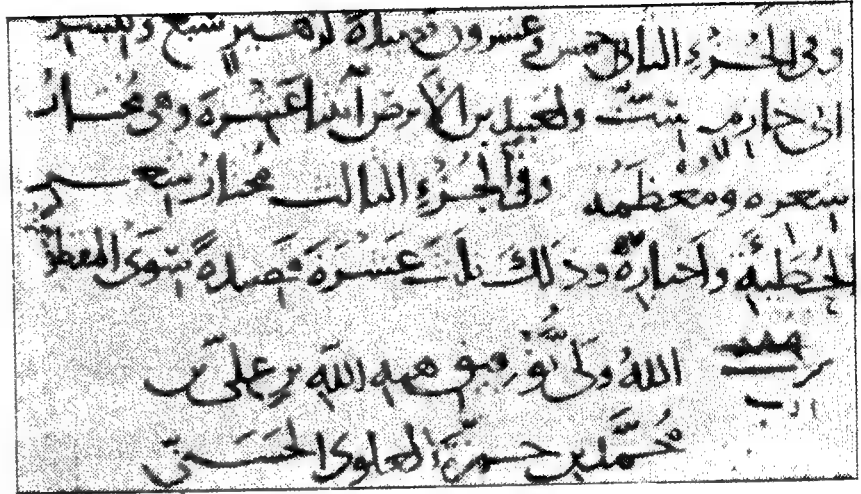 وفى الجُزءِ الثانى خمس وعشرون قصيدةً لزهير سبع ولبشر
ابى خازم ستٌّ ولعبيد بن الأَبرص اثنتا عَشْرة وهى مُختارُ
شعره ومُعْظَمُه وفى الجُزءِ الثالث مُختارُ شعر
الحُطَيئَة وأخبارُهُ وذلكَ ثلثَ عَشْرَةَ قَصيدةً سِوَى
اللهُ ولىُّ توفيق هبه اللهِ بن علىّ بن
مُحَمَّد بن حمزَة العلوى الحَسَنىّ